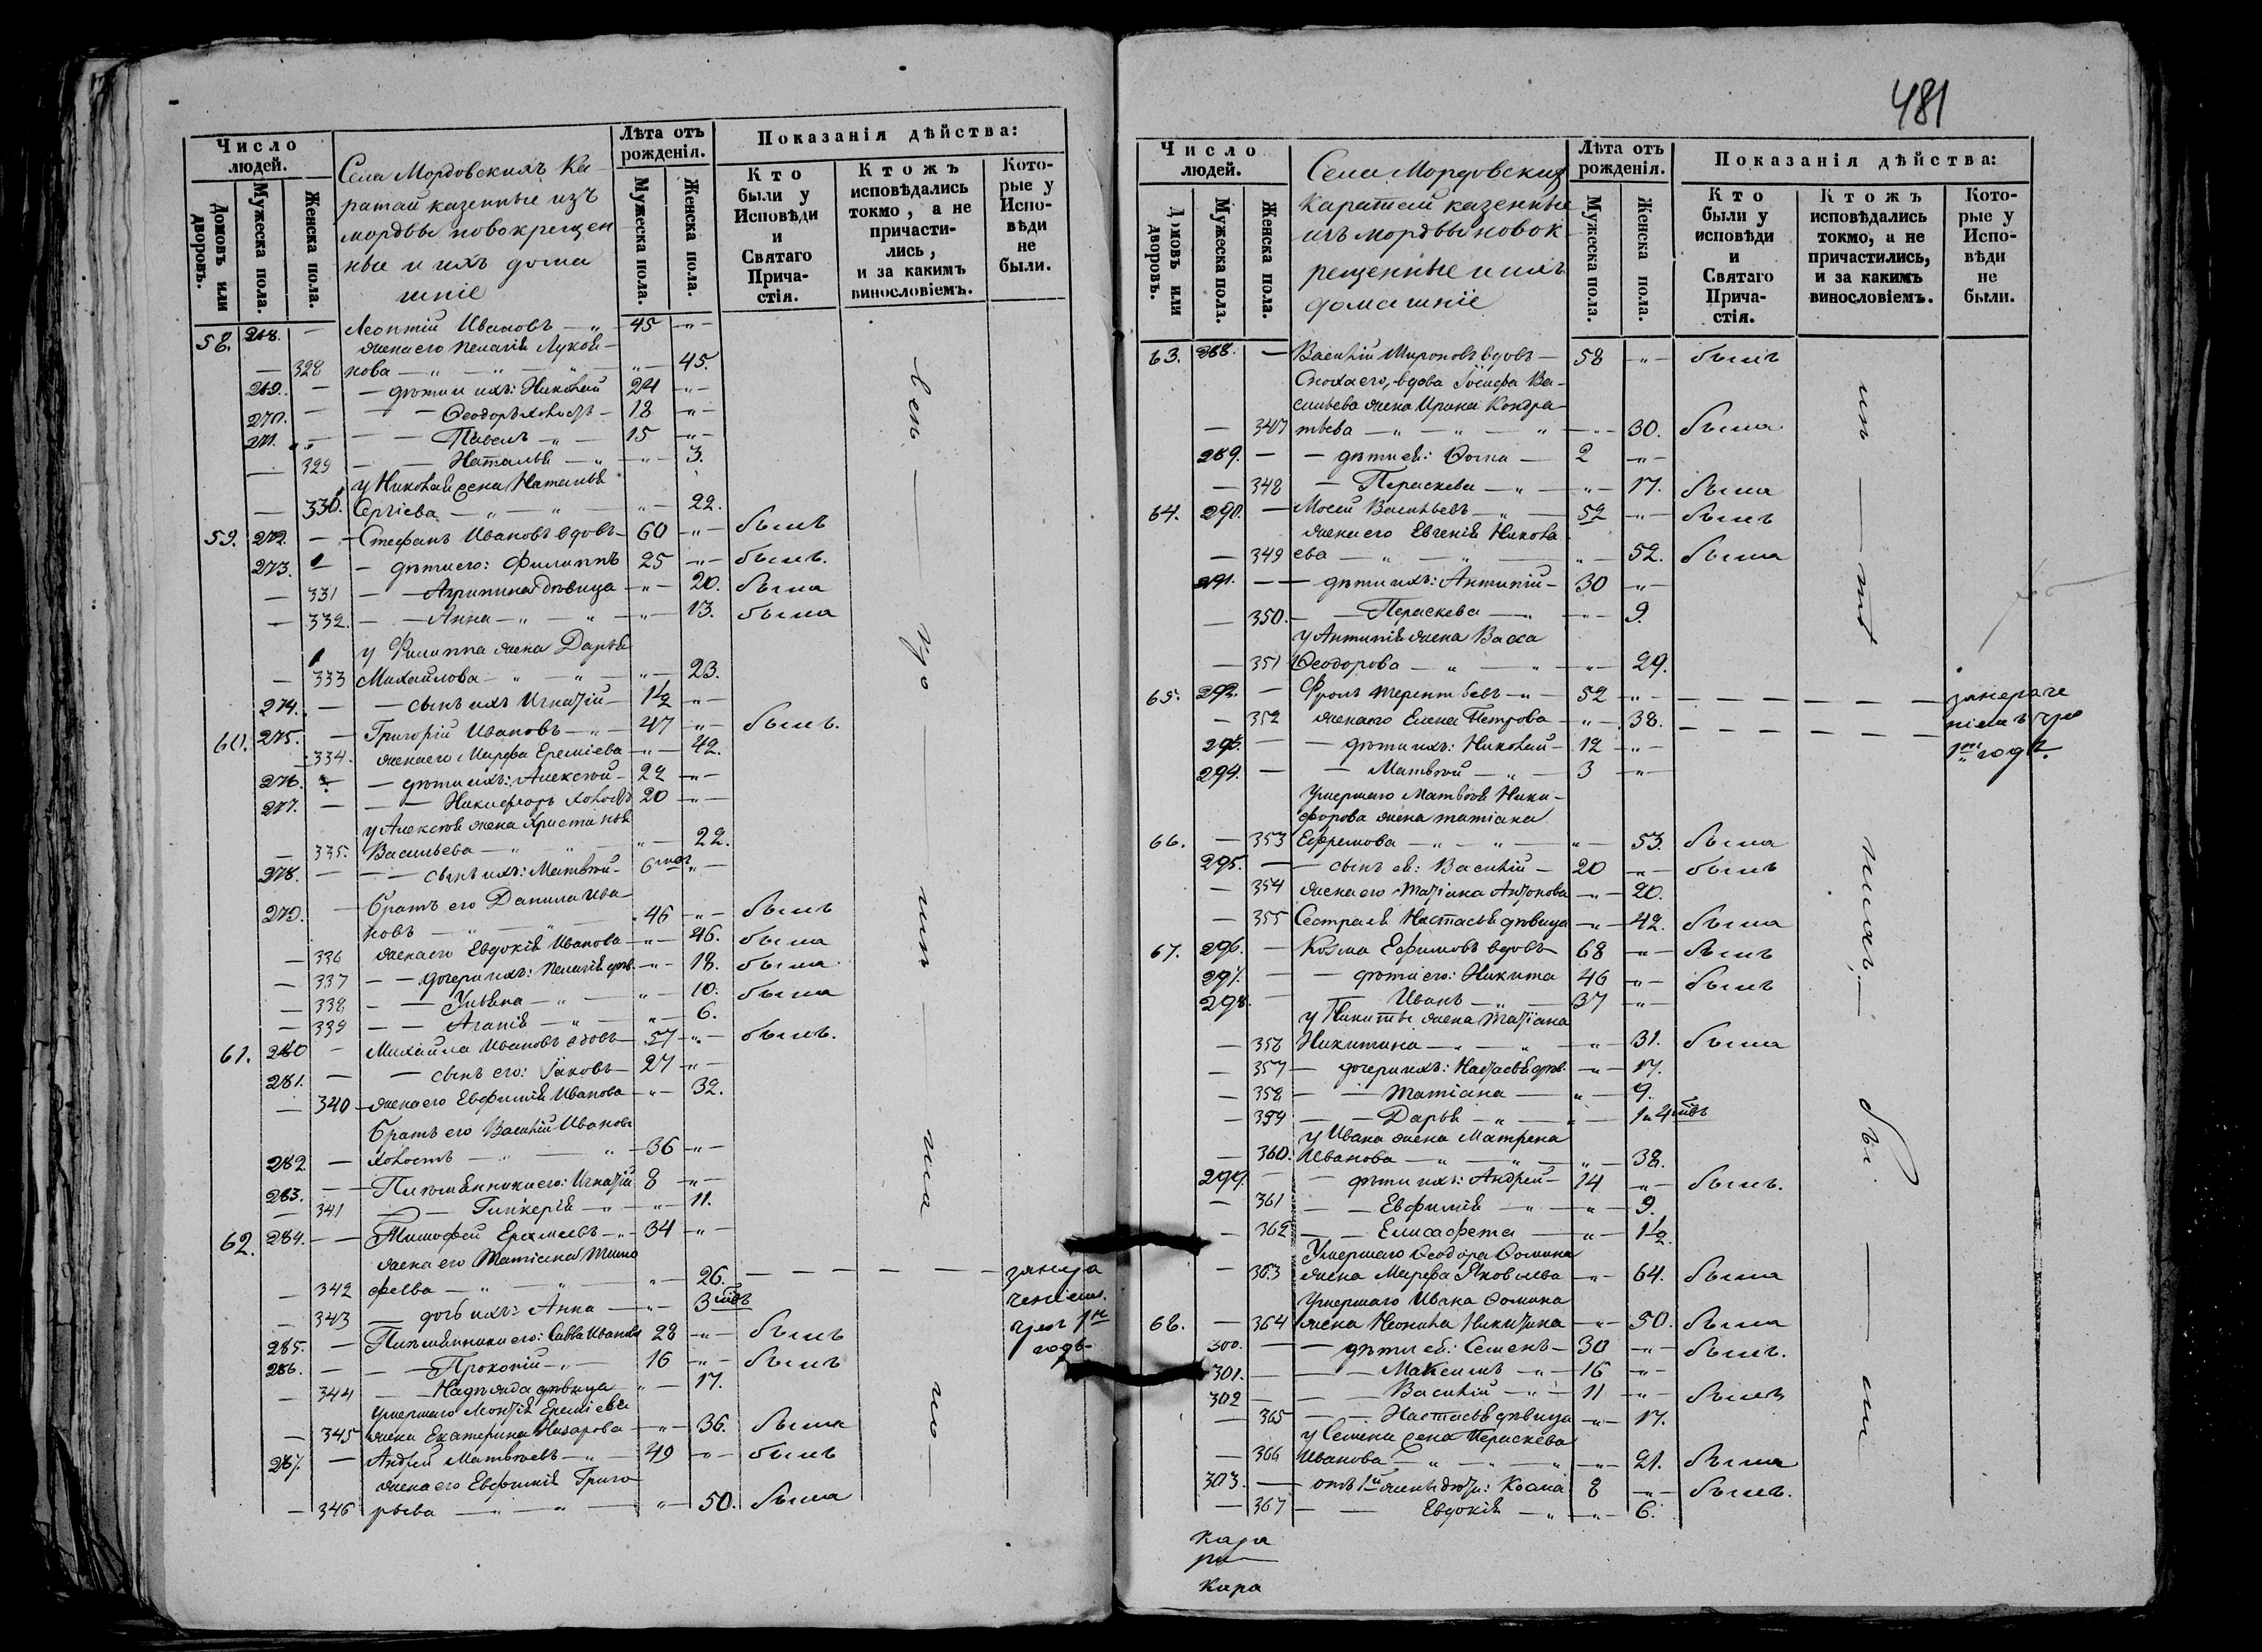 Число людей.
Домовъ или дворовъ.
Мужеска пола.
Женска пола.
Села Мордовскихъ Ка-
ратай казенные изъ
мордвы новокрещен
ные и ихъ дома
шніе
Лѣта отъ рожденія.
Мужеска пола.
Женска пола.
Показанія дѣйства:
Кто были у Исповѣди и Святаго Прича-стія.
Ктожъ исповѣдались токмо, а не причасти-лись, и за какимъ винословіемъ.
Кото-рые у Испо-вѣди не были.
58. 268. — Леонтій Ивановъ — 45 —
жена его Пелагія Лукоя-
— 328 нова — 45.
269. — дѣти ихъ: Николай 24 —
270. — Ѳеодоръ холостъ 18 —
271. — Павелъ — 15 —
— 329 — Наталья — 3.
у Николая жена Наталья
— 330. Сергіева — 22.
59. 272. — Стефанъ Ивановъ вдовъ 60 — былъ
273. — дѣти его: Филиппъ 25 — былъ.
— 331 — Агрипина дѣвица — 20. была
— 332. — Анна — 13. была
у Филиппа жена Дарья
— 333 Михайлова — 23.
274. — сынъ ихъ Игнатій — 1½ —
60. 275. — Григорій Ивановъ — 47 — былъ.
— 334. жена его Марфа Ереміева — 42.
276. — дѣти ихъ: Алексѣй — 22 —
277. — Никифоръ холостъ 20 —
у Алексѣя жена Христинья
— 335. Васильева — 22.
278. — сынъ ихъ: Матвѣй — 6 мес —
279. — Братъ его Данила Ива-
новъ — 46 — былъ
— 336 жена его Евдокія Иванова — 46. была
— 337 — дочери ихъ: Пелагія дѣв. — 18. была
— 338 — Ульяна — 10. была
— 339 — Агапія — 6.
61. 280 — Михайла Ивановъ вдовъ 57 — былъ.
281. — сынъ его: Іаковъ — 27 —
— 340 жена его Евфимія Иванова — 32.
Братъ его Василій Ивановъ
282 — холостъ — 36 —
283. — Племянники его: Игнатій 8 —
— 341 — Гликерія — 11.
62. 284. — Тимофей Еремеевъ — 34 —
жена его Татіана Тимо
— 342 феева — 26. — — — — занера
— 343 — дочь ихъ: Анна — 3 чeніемъ.
285. — Племянники его: Савва Ивановъ 28 — былъ чрез 1й
286. — Прокопій — 16 — былъ годъ
— 344 — Надежда дѣвица — 17.
Умершаго Леонтія Ереміева
— 345 жена Екатерина Назарова — 36. была
287. — Андрей Матвѣевъ — 49 — былъ
жена его Евфимія Григо
— 346 рьева — 50. была
481
Число людей.
Домовъ или дворовъ.
Мужеска пола.
Женска пола.
Села Мордовских
Каратай казенные
изъ мордвы новок
рещенные и ихъ
домашніе
Лѣта отъ рожденія.
Мужеска пола.
Женска пола.
Показанія дѣйства:
Кто были у исповѣди и Святаго Прича-стія.
Ктожъ исповѣдались токмо, а не причастились, и за какимъ винословіемъ.
Кото-рые у Испо-вѣди не были.
63. 288. — Василій Мироновъ вдовъ — 58 — былъ
Сноха его, вдова Іосифа Ва-
сильева жена Ирина Кондра-
— 347 тьева — 30. была
289. — дѣти ея: Ѳома — 2 —
— 348 — Параскева — 17. была
64. 290. — Мосей Васильевъ — 52 — былъ
жена его Евгенія Никола
— 349 ева — 52. была
291. — дѣти ихъ: Антипій — 30 —
— 350. — Параскева — 9.
у Антипія жена Васса
— 351 Ѳеодорова — 29.
65. 292. — Фролъ Терентьевъ — 52 — — — — — занераче
— 352 жена его Елена Петрова — 38. — — — — ніемъ чрз
293. — дѣти ихъ: Николай — 12 — 1й годъ.
294. — Матвѣй — 3 —
Умершаго Матвѣя Ники-
форова жена Татіана
66. — 353 Ефремова — 53. была
295. — сынъ ея: Василій — 20 — былъ
— 354 жена его Татіана Антонова — 20.
— 355 Сестра ея Настасья дѣвица — 42. была
67. 296. — Козма Ефимовъ вдовъ — 68 — былъ
297. — дѣти его: Никита 46 — былъ
298. — Иванъ — 37 —
у Никиты жена Татіана
— 356 Никитина — 31. была
— 357 — дочери ихъ: Настасья дѣв. — 17.
— 358 — Татіана — 9.
— 359 — Дарья — 1
у Ивана жена Матрена
— 360. Иванова — 38.
299. — дѣти ихъ: Андрей — 14 — былъ.
— 361 — Евфимія — 9.
— 362 — Елисафета — 1½.
Умершаго Ѳеодора Ѳомина
— 363 жена Марфа Яковлева — 64. была
Умершаго Ивана Ѳомина
68. — 364 жена Неонила Никитина — 50. была
300. — дѣти ея: Семенъ — 30 — былъ.
301. — Максимъ — 16 —
302 — Василій — 11 — былъ
— 365 — Настасья дѣвица — 17.
у Семена жена Параскева
— 366 Иванова — 21. была
303. — отъ 1й жены дѣти: Козма 8 — былъ.
— 367 — Евдокія — 6.
Кара
Кара